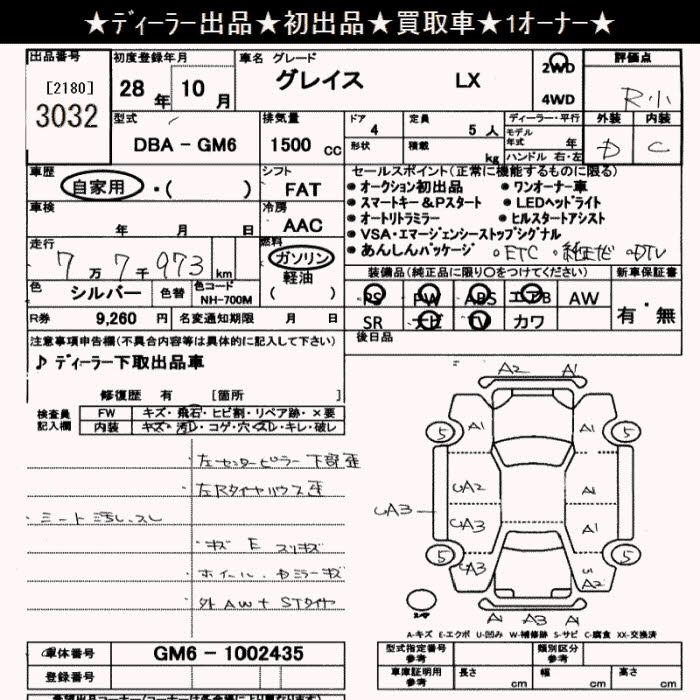 ★ディーラー出品★初出品★買取車★1オーナー★
出品番号 初度登録年月 車名 グレード 評価点
[2180] 28年 10月 グレイス LX 2WD R小
3032 4WD
型式 排気量 ドア 定員 ディーラー・平行 外装 内装
DBA - GM6 1500 cc 4 5人 モデル年式 年 D C
形状 積載 kg ハンドル 右・左
車歴 シフト セールスポイント(正常に機能するものに限る)
自家用・( ) FAT ●オークション初出品 ●ワンオーナー車
車検 冷房 ●スマートキー&Pスタート ●LEDヘッドライト
年 月 日 AAC ●オートリトラミラー ●ヒルスタートアシスト
走行 燃料 ●VSA・エマージェンシーストップシグナル
7万7千973km ガソリン ●あんしんパッケージ ○ETC ○純正ナビ ○DTV
軽油
( )
装備品(純正品に限り○をつけてください) 新車保証書
色 シルバー 色替 色コード NH-700M PS PW ABS エアB AW 有・無
R券 9,260 円 名変通知期限 月 日 SR ナビ TV カワ
注意事項申告欄(不具合内容等は具体的に記入して下さい) 後日品
♪ ディーラー下取出品車
修復歴 有 [箇所 ]
検査員記入欄 FW キズ・飛石・ヒビ割・リペア跡・×要
内装 キズ・汚レ・コゲ・穴・スレ・キレ・破レ
左センターピラー下部歪
左Rタイヤハウス歪
シート汚レ、スレ
キズ E スリキズ
ホイール、ドミラーキズ
外AW+STタイヤ
A2 A1
5 A1 A1 5
UA2 A1
UA3 UA3 A1
5 UA3 A2 5
A1 A3 A1
A-キズ E-エクボ U-凹み W-補修跡 S-サビ C-腐食 XX-交換済
車体番号 GM6 - 1002435 型式指定番号 参考 類別区分 参考
登録番号 車庫証明用 参考 長さ cm 幅 cm 高さ cm